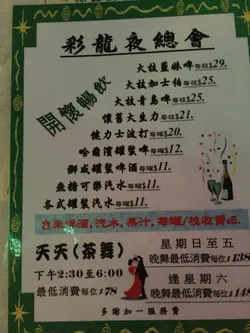 彩龍夜總會
開懷暢飲
大枝藍妹啤每枝$29.
大枝加士伯每枝$25.
大枝青島啤每枝$21.
懷舊大生力每枝$21.
健力士波打每枝$20.
哈爾濱罐裝啤每罐$12.
獅威罐裝啤酒每罐$11.
無糖可樂汽水每罐$11.
各式罐裝汽水每罐$11.
自來啤酒,汽水,果汁,每罐/枝收費$5.
天天(茶舞)
下午2:30至6:00
最低消費每位$78
星期日至五
晚舞最低消費每位$138
逢星期六
晚舞最低消費每位$148
多謝加一服務費